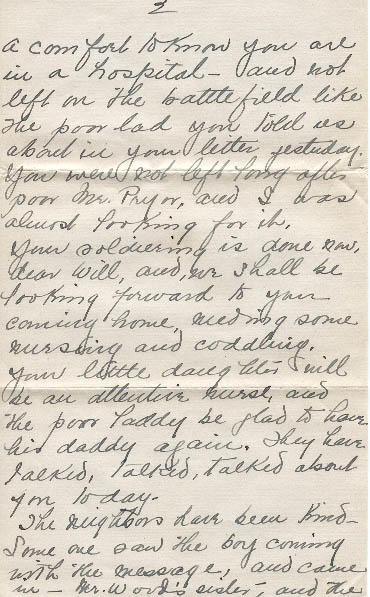 2
a comfort to know you are
in a hospital - and not
left on the battlefield like
the poor lad you told us
about in your letter yesterday.
You were not left long after
poor Mr. Pryor, and I was
almost looking for it.
Your soldiering is done now,
dear Will, and, we shall be
looking forward to your
coming home, needing some
nursing and coddling.
Your little daughter will
be an attentive nurse, and
the poor laddy be glad to have
his daddy again. They have
talked, talked, talked about
you today.
The neighbors have been kind -
Some one saw the boy coming
with the message, and came
in - Mr. Wood's sister, and the